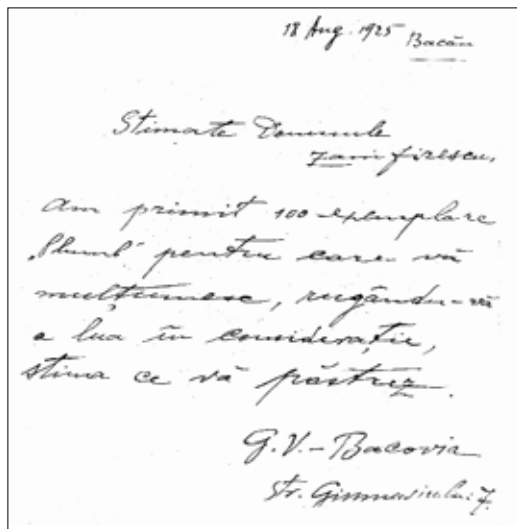 18 Aug. 1925 Bacău
Stimate Domnule
Zamfirescu,
Am primit 100 exemplare
„Plumb” pentru care vă
mulțumesc, rugându-vă
a lua în considerație,
stima ce vă păstrez.
G. V. - Bacovia
Str. Gimnaziului 7.